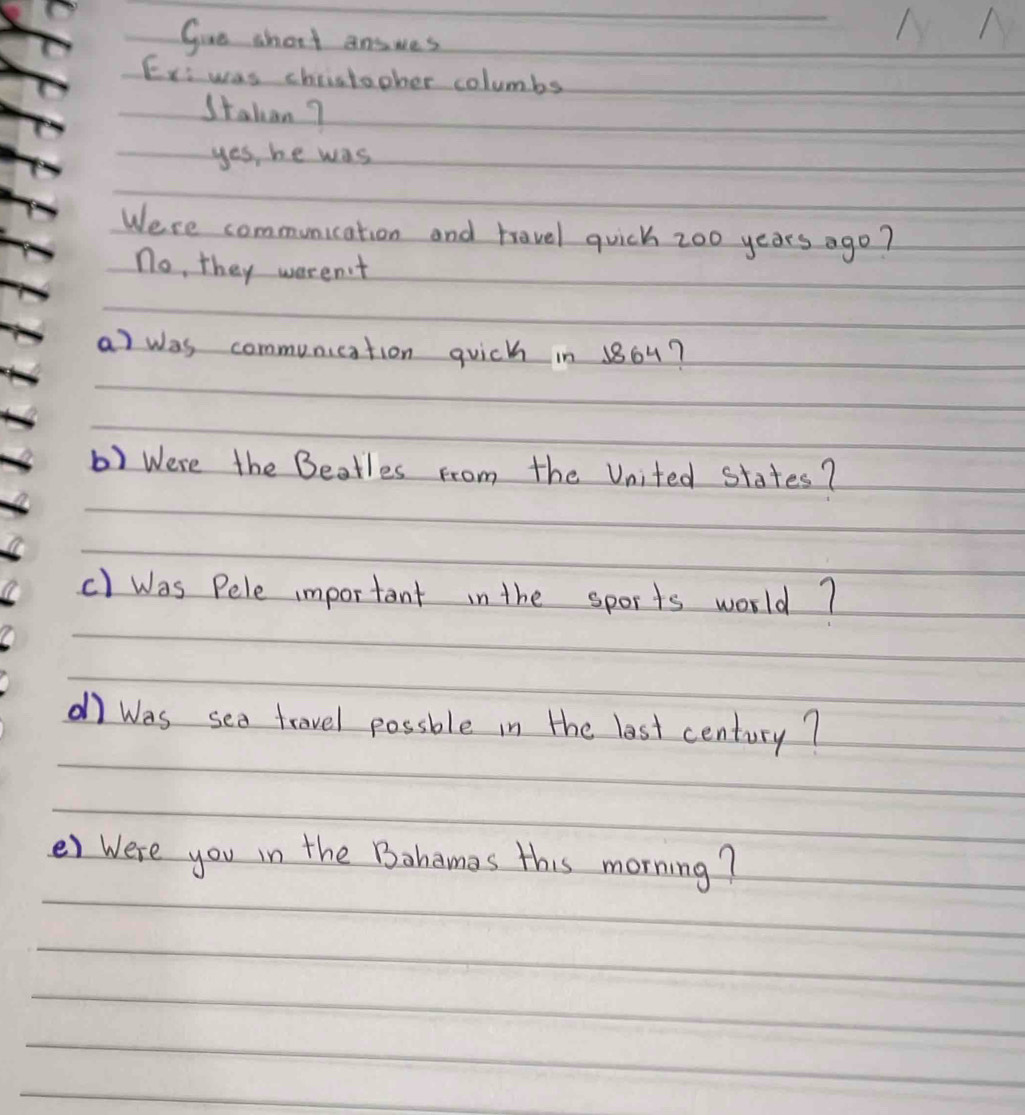 Give short answes
Ex: was christopher columbs
Italian?
yes, he was
Were communication and travel quick 200 years ago?
no, they weren't
a) Was communication quick in 1864?
b) Were the Beatles from the United States?
c) Was Pele important in the sports world?
d) Was sea travel possble in the last century?
e) Were you in the Bahamas this morning?